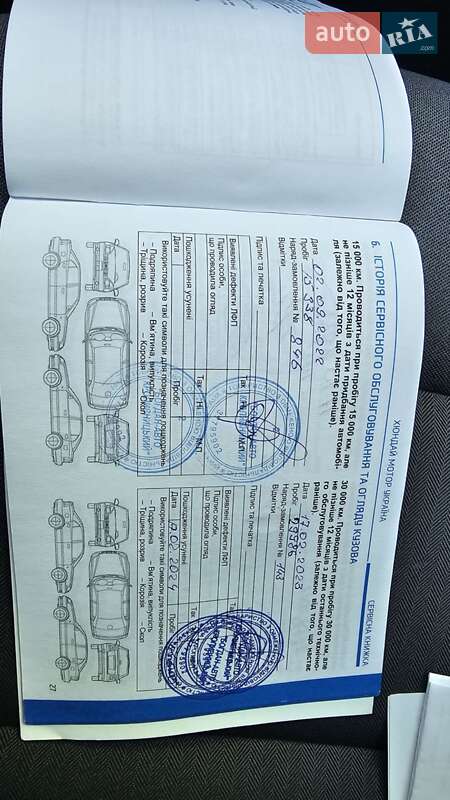 auto
RIA
.com
ХЮНДАЙ МОТОР УКРАЇНА
СЕРВІСНА КНИЖКА
6. ІСТОРІЯ СЕРВІСНОГО ОБСЛУГОВУВАННЯ ТА ОГЛЯДУ КУЗОВА
15 000 км. Проводиться при пробігу 15 000 км, але
не пізніше 12 місяців з дати придбання автомобі-
ля (залежно від того, що настає раніше).
Дата 02.09.2022
Пробіг
Наряд-замовлення № 846
Відмітки
Підпис та печатка
Виявлені дефекти ЛФП Так
Підпис особи,
що проводила огляд
Пошкодження усунені Так Ні
Дата Пробіг
Використовуйте такі символи для позначення пошкоджень
– Подряпина – Вм'ятина, випуклість
– Тріщина, розрив – Корозія – Скол
30 000 км. Проводиться при пробігу 30 000 км, але
не пізніше 12 місяців з дати останнього технічно-
го обслуговування (залежно від того, що настає
раніше).
Дата 17.02.2023
Пробіг 29986
Наряд-замовлення № 143
Відмітки
Підпис та печатка
Виявлені дефекти ЛФП
Підпис особи,
що проводила огляд
Пошкодження усунені
Дата 17.02.2024 Пробіг
Використовуйте такі символи для позначення пошкоджень
– Подряпина – Вм'ятина, випуклість
– Тріщина, розрив – Корозія – Скол
27